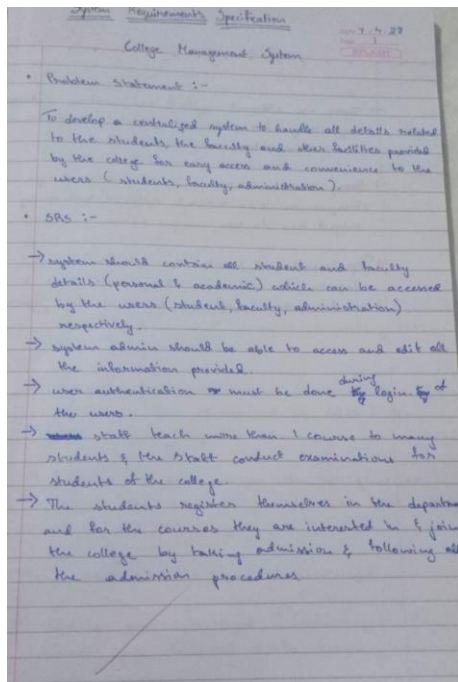 System Requirements Specification
7.4.23
1
College Management System
• Problem Statement :-
To develop a centralized system to handle all details related
to the students, the faculty and other facilities provided
by the college for easy access and convenience to the
users (students, faculty, administration).
• SRS :-
→ system should contain all student and faculty
details (personal & academic) which can be accessed
by the users (student, faculty, administration)
respectively.
→ system admin should be able to access and edit all
the information provided.
→ user authentication must be done during login of
the users.
→ staff teach more than 1 course to many
students & the staff conduct examinations for
students of the college.
→ The students register themselves in the departme
and for the courses they are interested in & joine
the college by taking admission & following all
the admission procedures